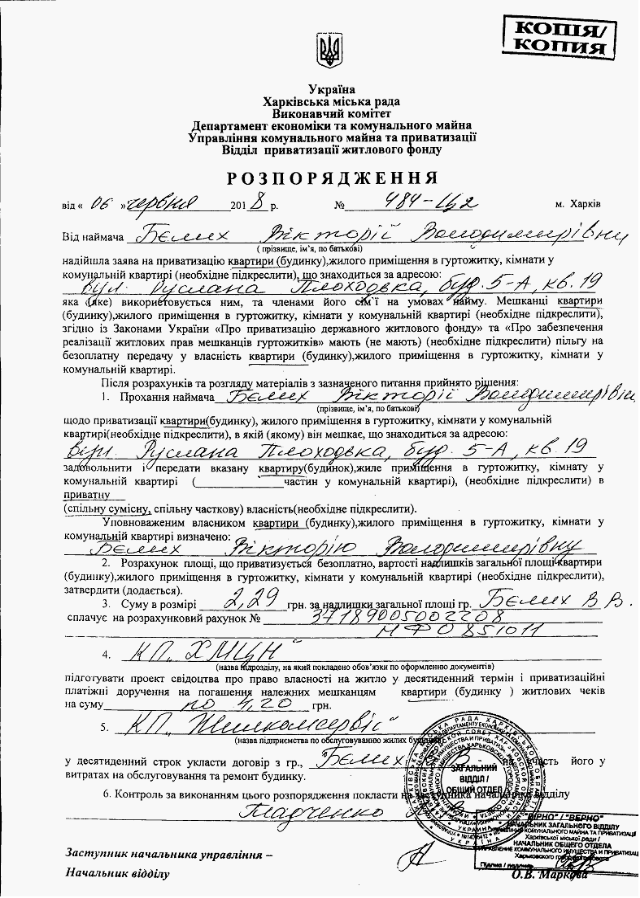 КОПІЯ/
КОПИЯ
Україна
Харківська міська рада
Виконавчий комітет
Департамент економіки та комунального майна
Управління комунального майна та приватизації
Відділ приватизації житлового фонду
РОЗПОРЯДЖЕННЯ
від « 06 » червня 2018 р. № 484-Ц2 м. Харків
Від наймача Бєлих Вікторії Володимирівни
( прізвище, ім'я, по батькові)
надійшла заява на приватизацію квартири (будинку),жилого приміщення в гуртожитку, кімнати у
комунальній квартирі (необхідне підкреслити), що знаходиться за адресою:
вул. Руслана Плоходька, буд. 5-А, кв. 19
яка (яке) використовується ним, та членами його сім'ї на умовах найму. Мешканці квартири
(будинку),жилого приміщення в гуртожитку, кімнати у комунальній квартирі (необхідне підкреслити),
згідно із Законами України «Про приватизацію державного житлового фонду» та «Про забезпечення
реалізації житлових прав мешканців гуртожитків» мають (не мають) (необхідне підкреслити) пільгу на
безоплатну передачу у власність квартири (будинку),жилого приміщення в гуртожитку, кімнати у
комунальній квартирі.
Після розрахунків та розгляду матеріалів з зазначеного питання прийнято рішення:
1. Прохання наймача Бєлих Вікторії Володимирівни
(прізвище, ім'я, по батькові)
щодо приватизації квартири(будинку), жилого приміщення в гуртожитку, кімнати у комунальній
квартирі(необхідне підкреслити), в якій (якому) він мешкає, що знаходиться за адресою:
вул. Руслана Плоходька, буд. 5-А, кв. 19
задовольнити і передати вказану квартиру(будинок),жиле приміщення в гуртожитку, кімнату у
комунальній квартирі (            частин у комунальній квартирі), (необхідне підкреслити) в
приватну
(спільну сумісну, спільну часткову) власність(необхідне підкреслити).
Уповноваженим власником квартири (будинку),жилого приміщення в гуртожитку, кімнати у
комунальній квартирі визначено:
Бєлих Вікторію Володимирівну
2. Розрахунок площі, що приватизується безоплатно, вартості надлишків загальної площі квартири
(будинку),жилого приміщення в гуртожитку, кімнати у комунальній квартирі (необхідне підкреслити),
затвердити (додається).
3. Суму в розмірі 2,29 грн. за надлишки загальної площі гр. Бєлих В В.
сплачує на розрахунковий рахунок № 37189005002208
МФО 851011
4. КП „ХМЦН"
(назва підрозділу, на який покладено обов'язки по оформленню документів)
підготувати проект свідоцтва про право власності на житло у десятиденний термін і приватизаційні
платіжні доручення на погашення належних мешканцям квартири (будинку ) житлових чеків
на суму по 4,20 грн.
5. КП „Жилкомсервіс"
(назва підприємства по обслуговуванню жилих будинків)
у десятиденний строк укласти договір з гр., Бєлих В В. на участь його у
витратах на обслуговування та ремонт будинку.
6. Контроль за виконанням цього розпорядження покласти на заступника начальника відділу
ЗАГАЛЬНИЙ
ВІДДІЛ /
ОБЩИЙ ОТДЕЛ
"ВІРНО" / "ВЕРНО"
НАЧАЛЬНИК ЗАГАЛЬНОГО ВІДДІЛУ
Харківської міської ради /
НАЧАЛЬНИК ОБЩЕГО ОТДЕЛА
Заступник начальника управління –
Начальник відділу О.В. Маркова